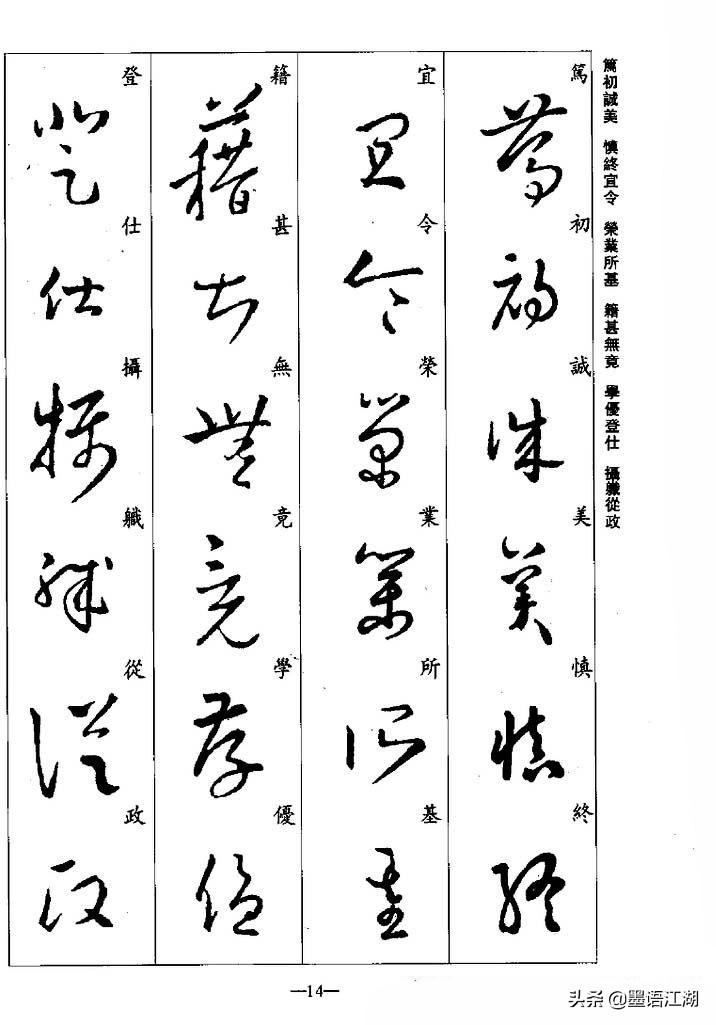 篤初誠美 慎終宜令 榮業所基 籍甚無竟 學優登仕 攝職從政
篤初誠美慎終
宜令榮業所基
籍甚無竟學優
登仕攝職從政
—14—
头条 @墨语江湖